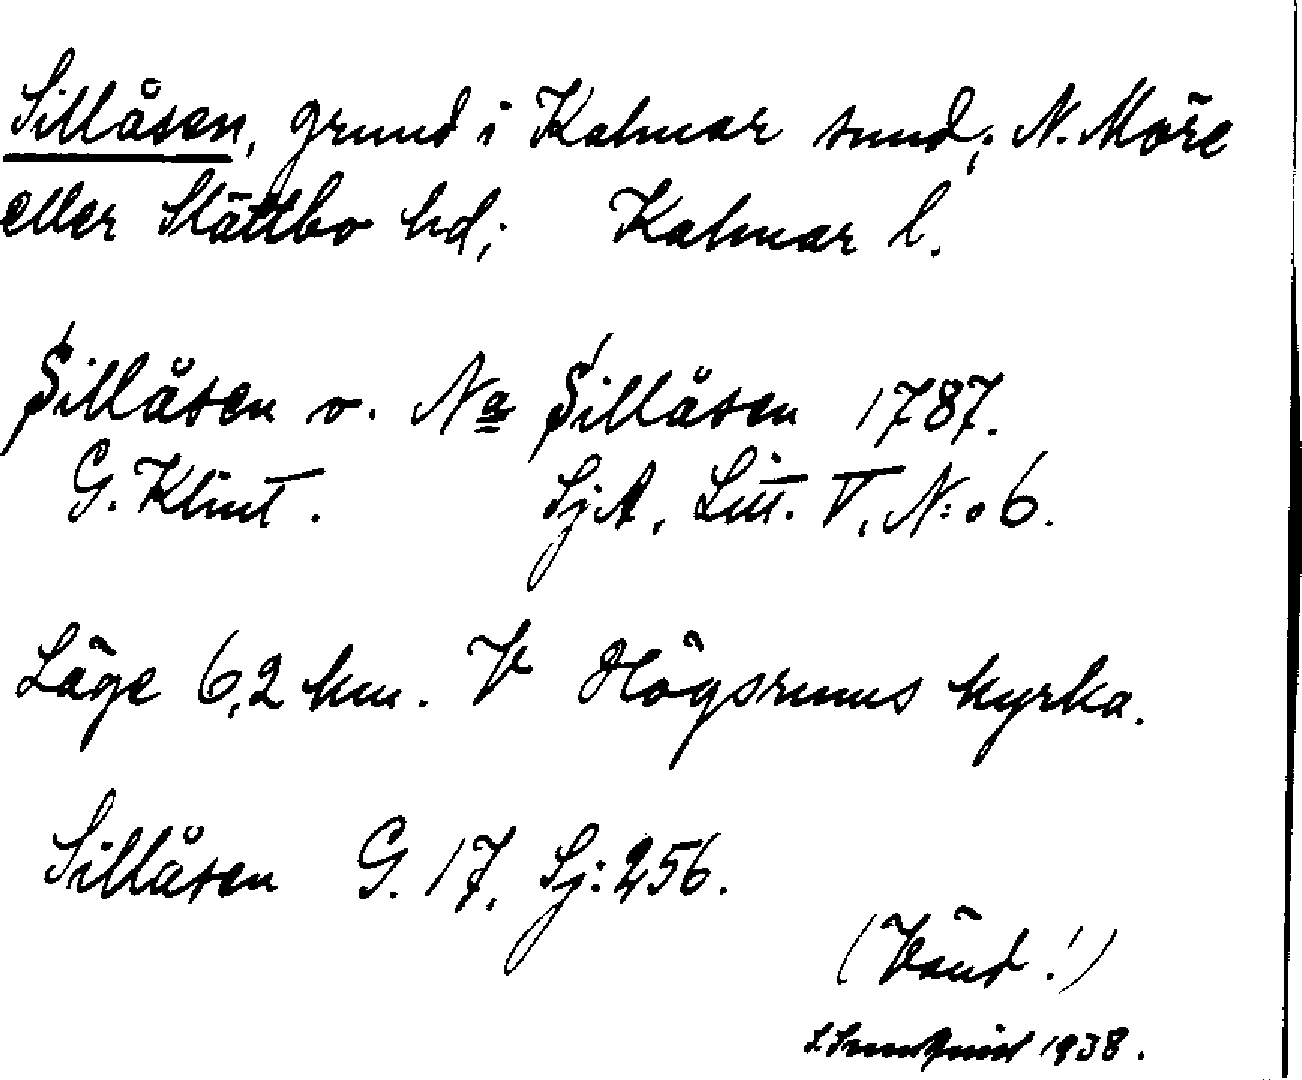 Sillåsen, grund i Kalmar sund; N. Möre
eller Slättbo hd; Kalmar l.
Sillåsen o. Na Sillåsen 1787.
G. Klint. SjA, Litt. V, N:o 6.
Läge 6,2 km. V Högsrums kyrka.
Sillåsen G. 17, Sj: 256.
(Vänd!)
1938.